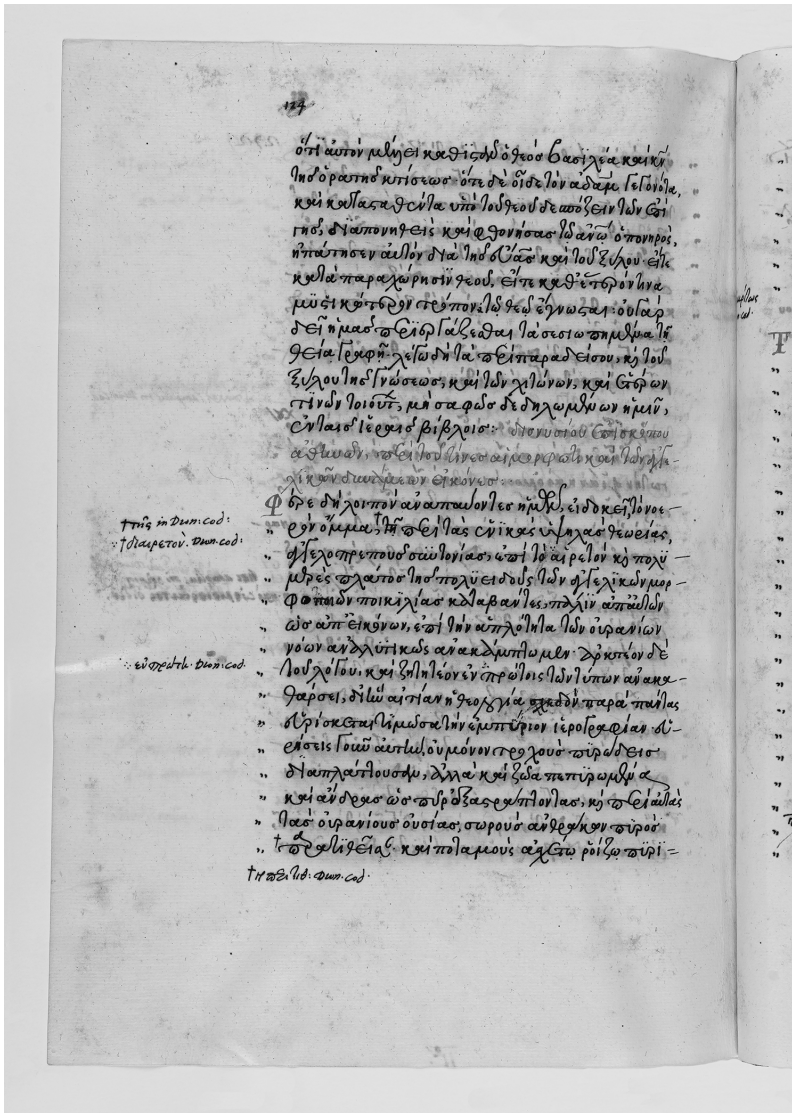 124
ὅτι αὐτὸν μέλλει καθιστᾶν ὁ θεὸς βασιλέα καὶ
τῆς ὁρατῆς κτίσεως· ὅτε δὲ οἶδε τὸν ἀδαμ γεγονότα,
καὶ κατασταθέντα ὑπὸ τοῦ θεοῦ δεσπόζειν τῶν ἐπὶ
γῆς, διαπονηθεὶς καὶ φθονήσας τῷ ἀνῶ ὁ πονηρὸς,
ἠπάτησεν αὐτὸν διὰ τῆς εὔας καὶ τοῦ ξύλου· εἴτε
κατὰ παραχώρησιν θεοῦ, εἴτε καθ' ἕτερόν τινα
μυστικώτερον τρόπον, τῷ θεῷ ἔγνωσται· οὐ γὰρ
δεῖ ἡμᾶς περιεργάζεσθαι τὰ σεσιωπημένα τῇ
θείᾳ γραφῇ· λέγω δὴ τὰ περὶ παραδείσου, καὶ τοῦ
ξύλου τῆς γνώσεως, καὶ τῶν χιτώνων, καὶ ἑτέρων
τινῶν τοιούτ, μὴ σαφῶς δεδηλωμένων ἡμῖν,
ἐν ταῖς ἱεραῖς βίβλοις:· διονυσίου ἐπισκόπου
ἀθηνῶν, περὶ τοῦ τίνες αἱ μορφωτικαὶ τῶν ἀγγε-
λικῶν δυνάμεων εἰκόνες
Φέρε δὴ λοιπὸν ἀναπαύοντες ἡμῶν, εἰ δοκεῖ, τὸ νοε-
ρὸν ὄμμα, †τῇ περὶ τὰς ἑνικὰς ὑψηλὰς θεωρίας,
ἀγγελοπρεποῦς συντονίας, ἐπὶ τὸ αἱρετὸν καὶ πολυ-
μερὲς πλάτος τῆς πολυειδοῦς τῶν ἀγγελικῶν μορ-
φοποιῶν ποικιλίας καταβάντες, πάλιν ἀπ' αὐτῶν
ὡς ἀπ' εἰκόνων, ἐπὶ τὴν ἁπλότητα τῶν οὐρανίων
νόων ἀναλυτικῶς ἀνακάμπτωμεν· ἀρκτέον δὲ
τοῦ λόγου, καὶ ζητητέον ἐν πρώτοις τῶν τύπων ἀνακα-
θάρσει, δι' ἣν αἰτίαν ἡ θεολογία σχεδὸν παρὰ πάντας
εὑρίσκεται τιμῶσα τὴν ἐμπύριον ἱερογραφίαν· εὑ-
ρήσεις γοῦν αὐτὴν, οὐ μόνον τροχοὺς πυρώδεις
διαπλάττουσαν, ἀλλὰ καὶ ζῶα πεπυρωμένα
καὶ ἄνδρας ὡς πῦρ ἐξαστράπτοντας, καὶ περὶ αὐτὰς
τὰς οὐρανίους οὐσίας, σωροὺς ἀνθράκων πυρὸς
†περατιθεῖσαν· καὶ ποταμοὺς ἀσχέτῳ ῥοίζῳ πυρι=
†τῆς in Dion: cod:
†διαιρετὸν. Dion: cod:
ἐν πρώτη Dion: cod.
†περιτιθ: Dion. cod.
cod.
Τ